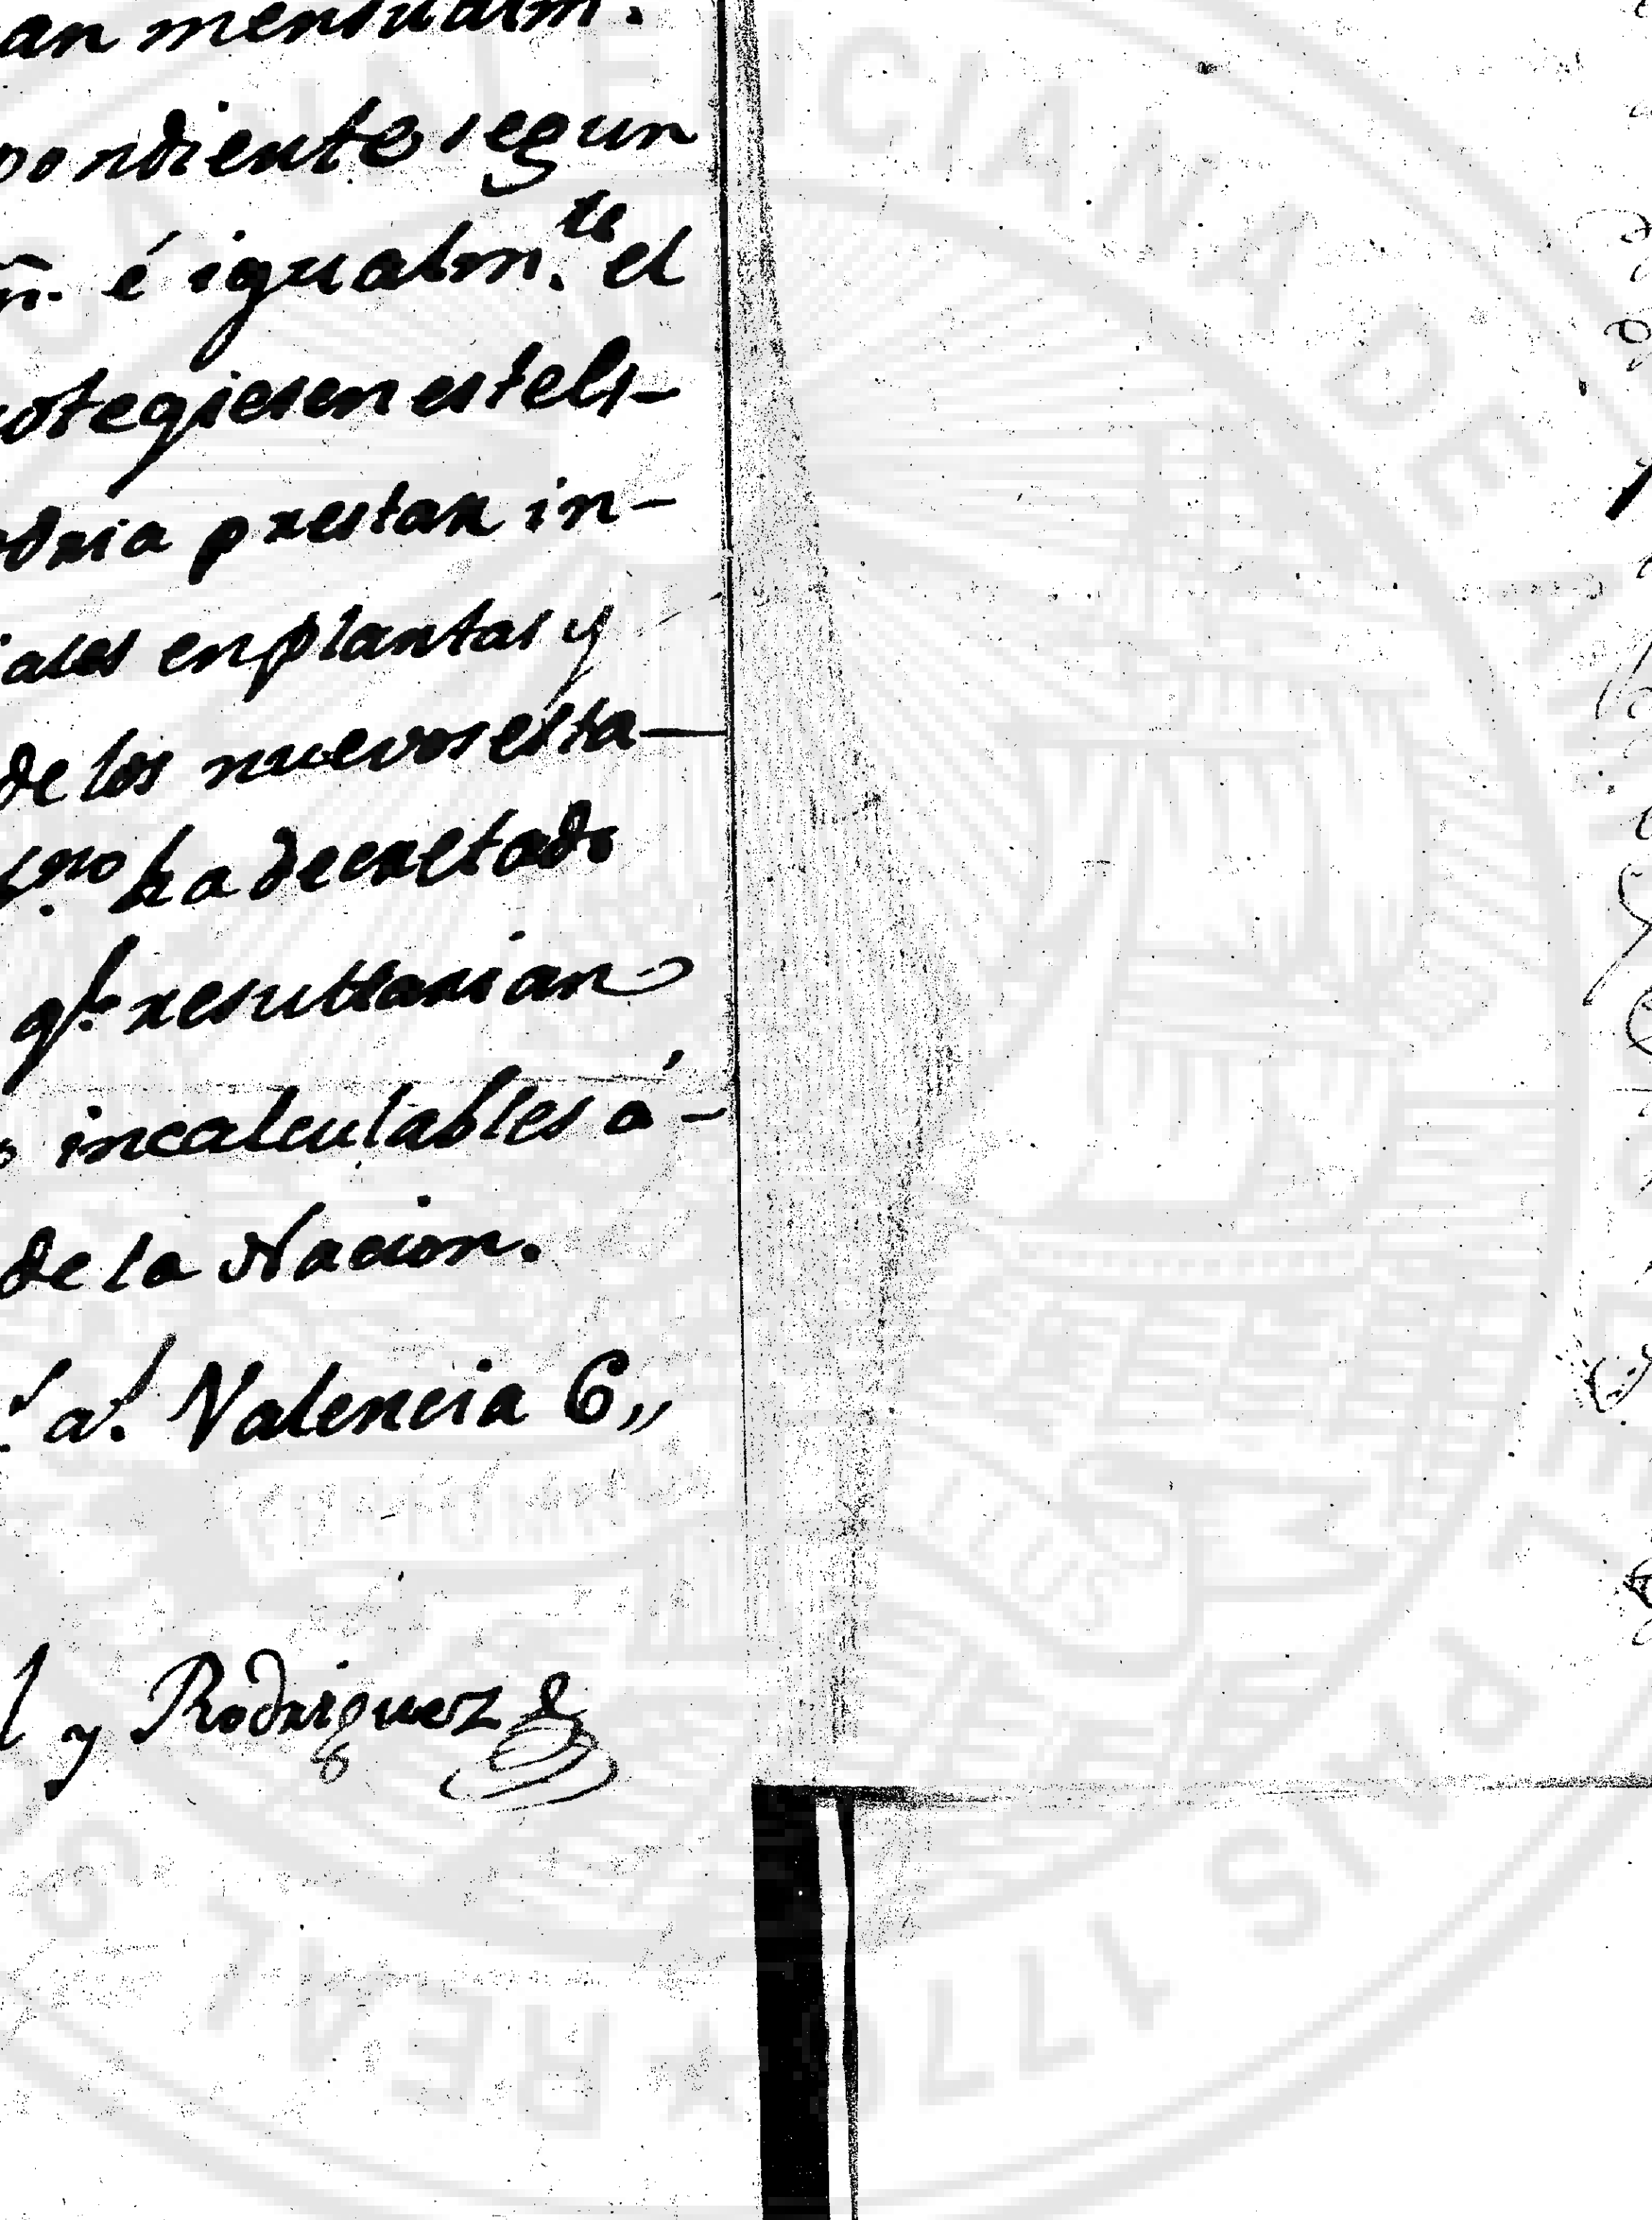 an mensualm.
pondiente segun
é igualm.te el
otegiesen estels-
dria prestar in-
iales en plantas y
de los nuevos esta-
no ha decretado
qe. resultarian
incalculables á-
de la Nacion.
a.s Valencia 6,,
l y Rodriguez
CIANA DE
REAL
177